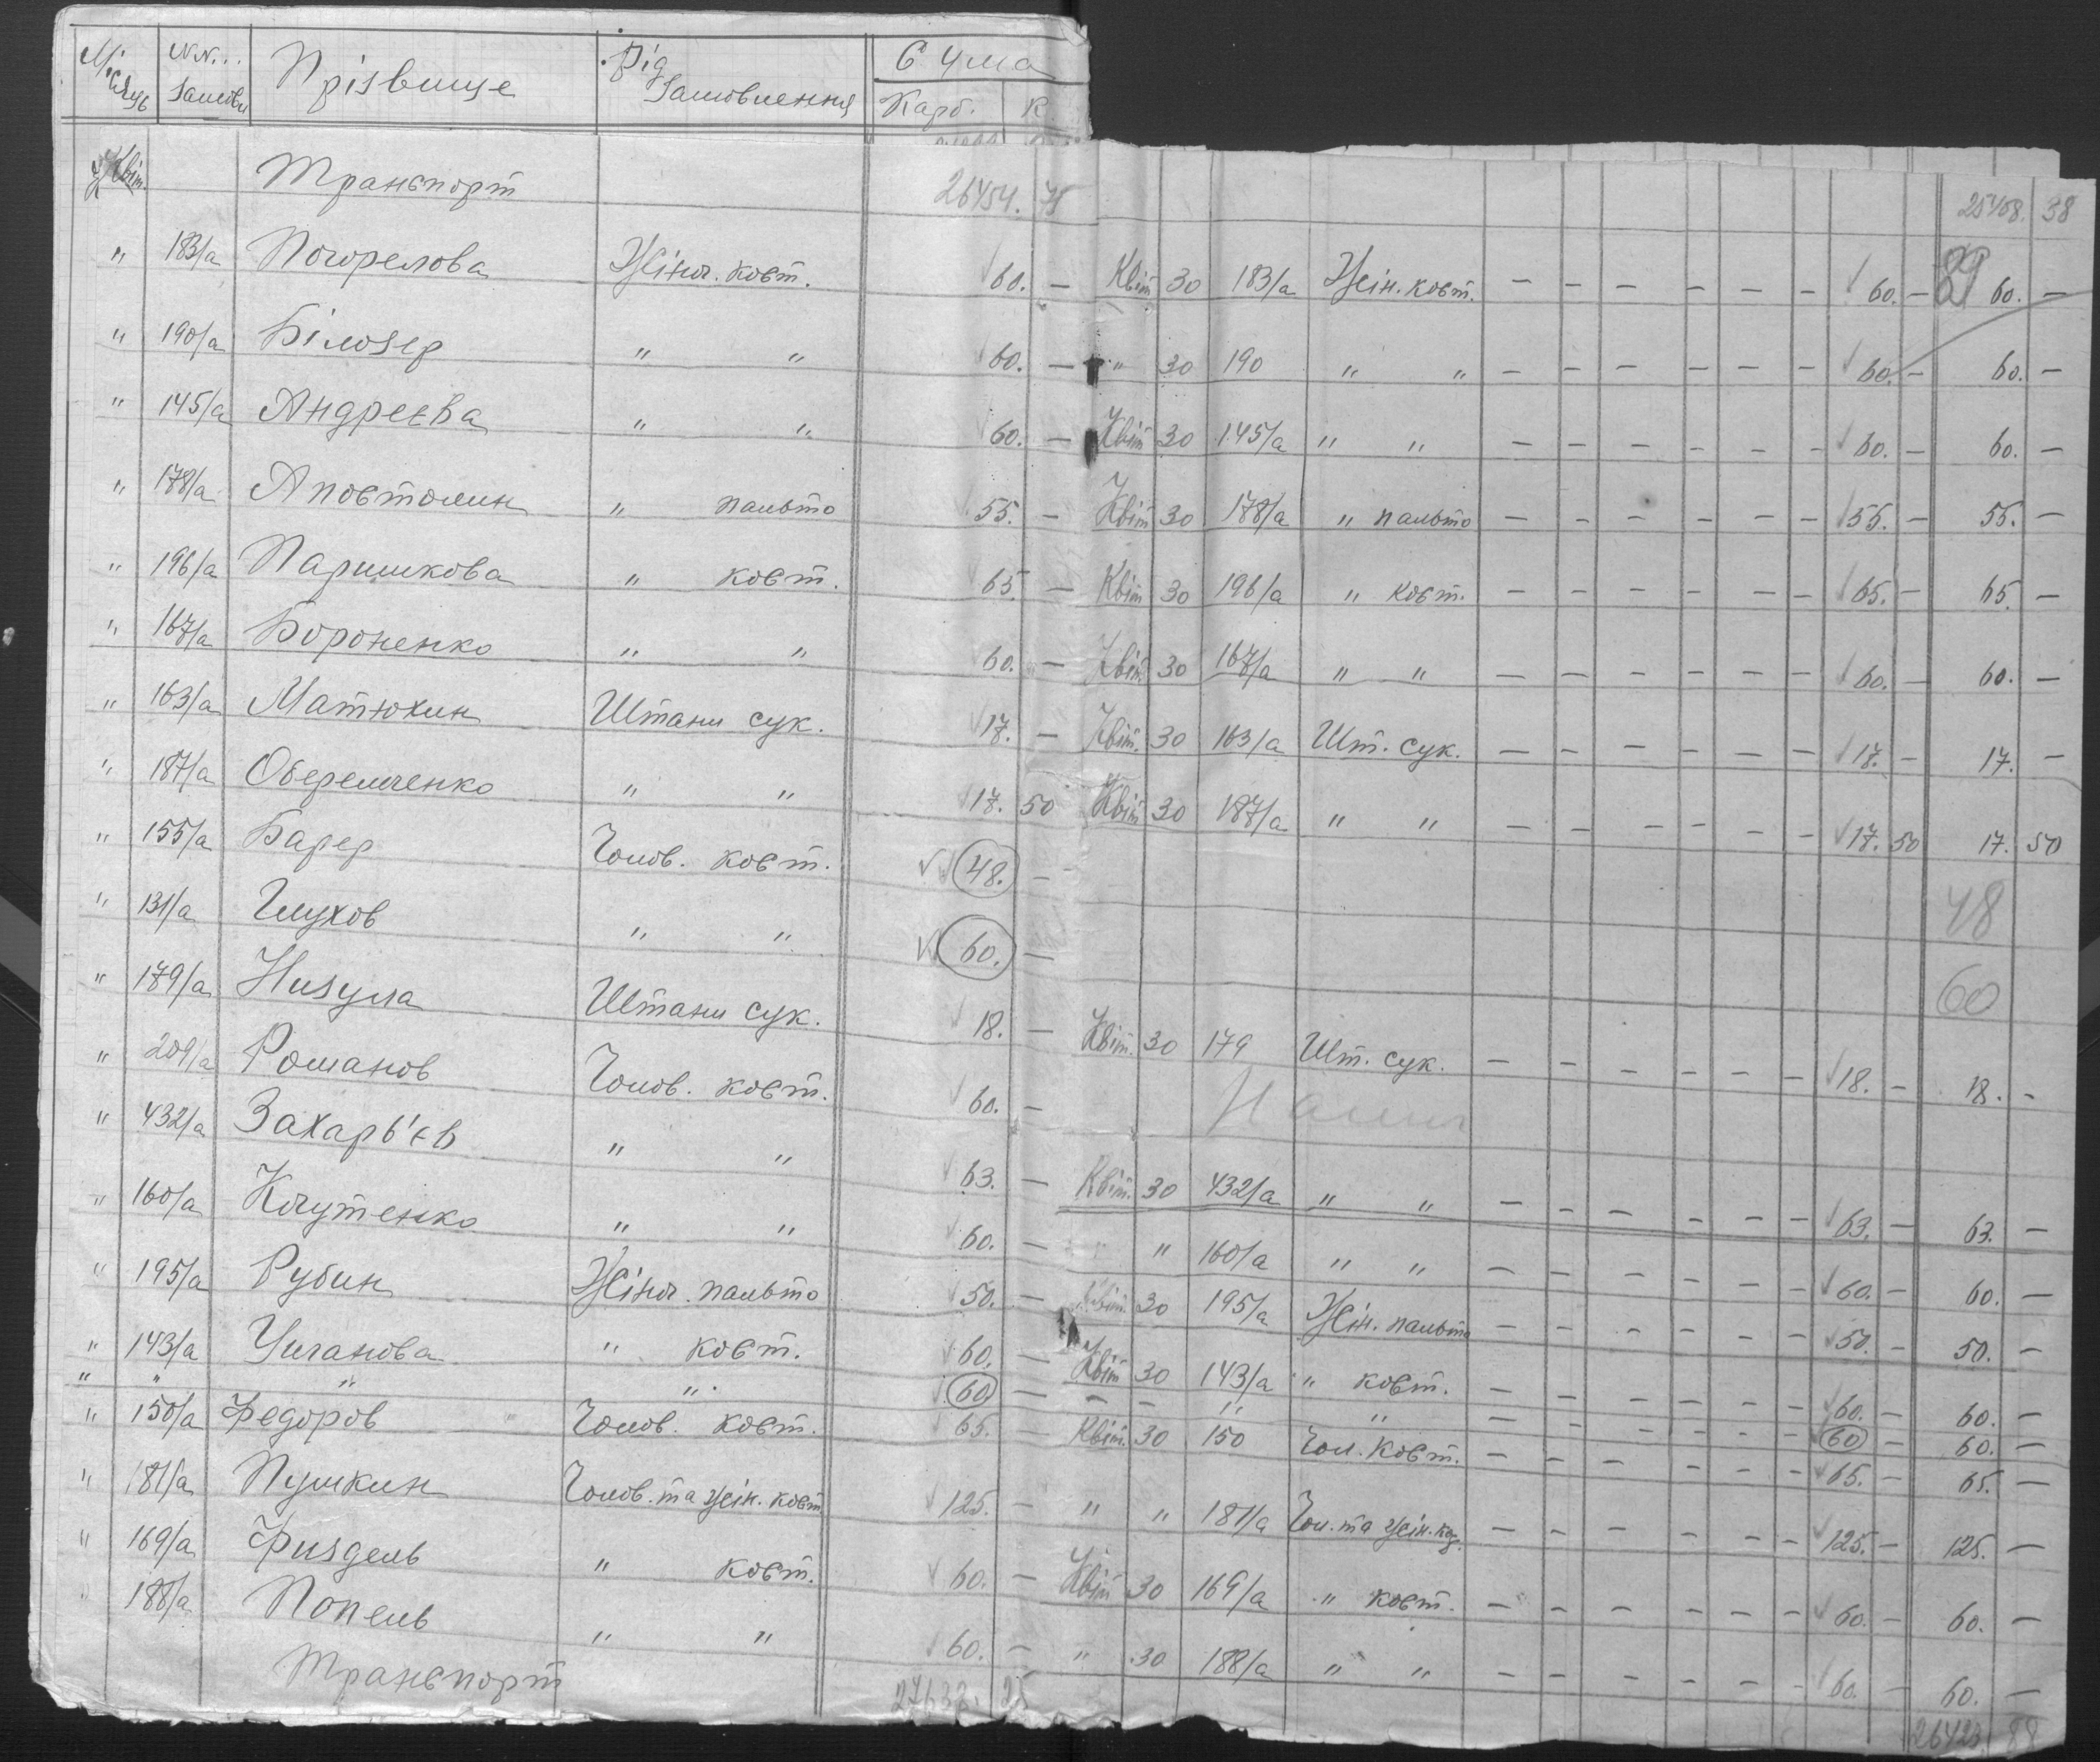 Місяць №№... замовл Прізвище Рід замовлення Сума Карб. К.
Квіт. Транспорт 26454. 75 25408. 38
" 183/а Погорелова Жіноч. кост. 60. — Квіт 30 183/а Жін. кост. — — — — — — 60. — 60. —
" 190/а Білозер " " 60. — " 30 190 " " — — — — — — 60. — 60. —
" 145/а Андреєва " " 60. — Квіт 30 145/а " " — — — — — — 60. — 60. —
" 178/а Апостолин " пальто 55. — Квіт 30 178/а " пальто — — — — — — 55. — 55. —
" 196/а Паришкова " кост. 65. — Квіт 30 196/а " кост. — — — — — — 65. — 65. —
" 167/а Бороненко " " 60. — Квіт. 30 167/а " " — — — — — — 60. — 60. —
" 163/а Матюхин Штани сук. 17. — Квіт. 30 163/а Шт. сук. — — — — — — 17. — 17. —
" 187/а Оберемченко " " 17. 50 Квіт 30 187/а " " — — — — — — 17. 50 17. 50
" 155/а Барер Чолов. кост. 48. — 48
" 131/а Глухов " " 60. — 60
" 179/а Низула Штани сук. 18. — Квіт. 30 179 Шт. сук. — — — — — — 18. — 18. —
" 209/а Романов Чолов. кост. 60. —
" 432/а Захарь'єв " " 63. — Квіт. 30 432/а " " — — — — — — 63. — 63. —
" 160/а Кочутенко " " 60. — " 160/а " " — — — — — — 60. — 60. —
" 195/а Рубин Жіноч. пальто 50. — Квіт. 30 195/а Жін. пальто — — — — — — 50. — 50. —
" 143/а Учанова " кост. 60. — Квіт 30 143/а " кост. — — — — — — 60. — 60. —
" " " " 60 — — — " " — — — — — — 60 — 60. —
" 150/а Федоров Чолов. кост. 65. — Квіт. 30 150 Чол. кост. — — — — — — 65. — 65. —
" 181/а Пушкин Чолов. та жін. кост 125. — " " 181/а Чол. та жін. ко. — — — — — — 125. — 125. —
" 169/а Физдель " кост. 60. — Квіт 30 169/а " кост. — — — — — — 60. — 60. —
" 188/а Попель " " 60. — " 30 188/а " " — — — — — — 60. — 60. —
Транспорт 27638. 25 26423. 88